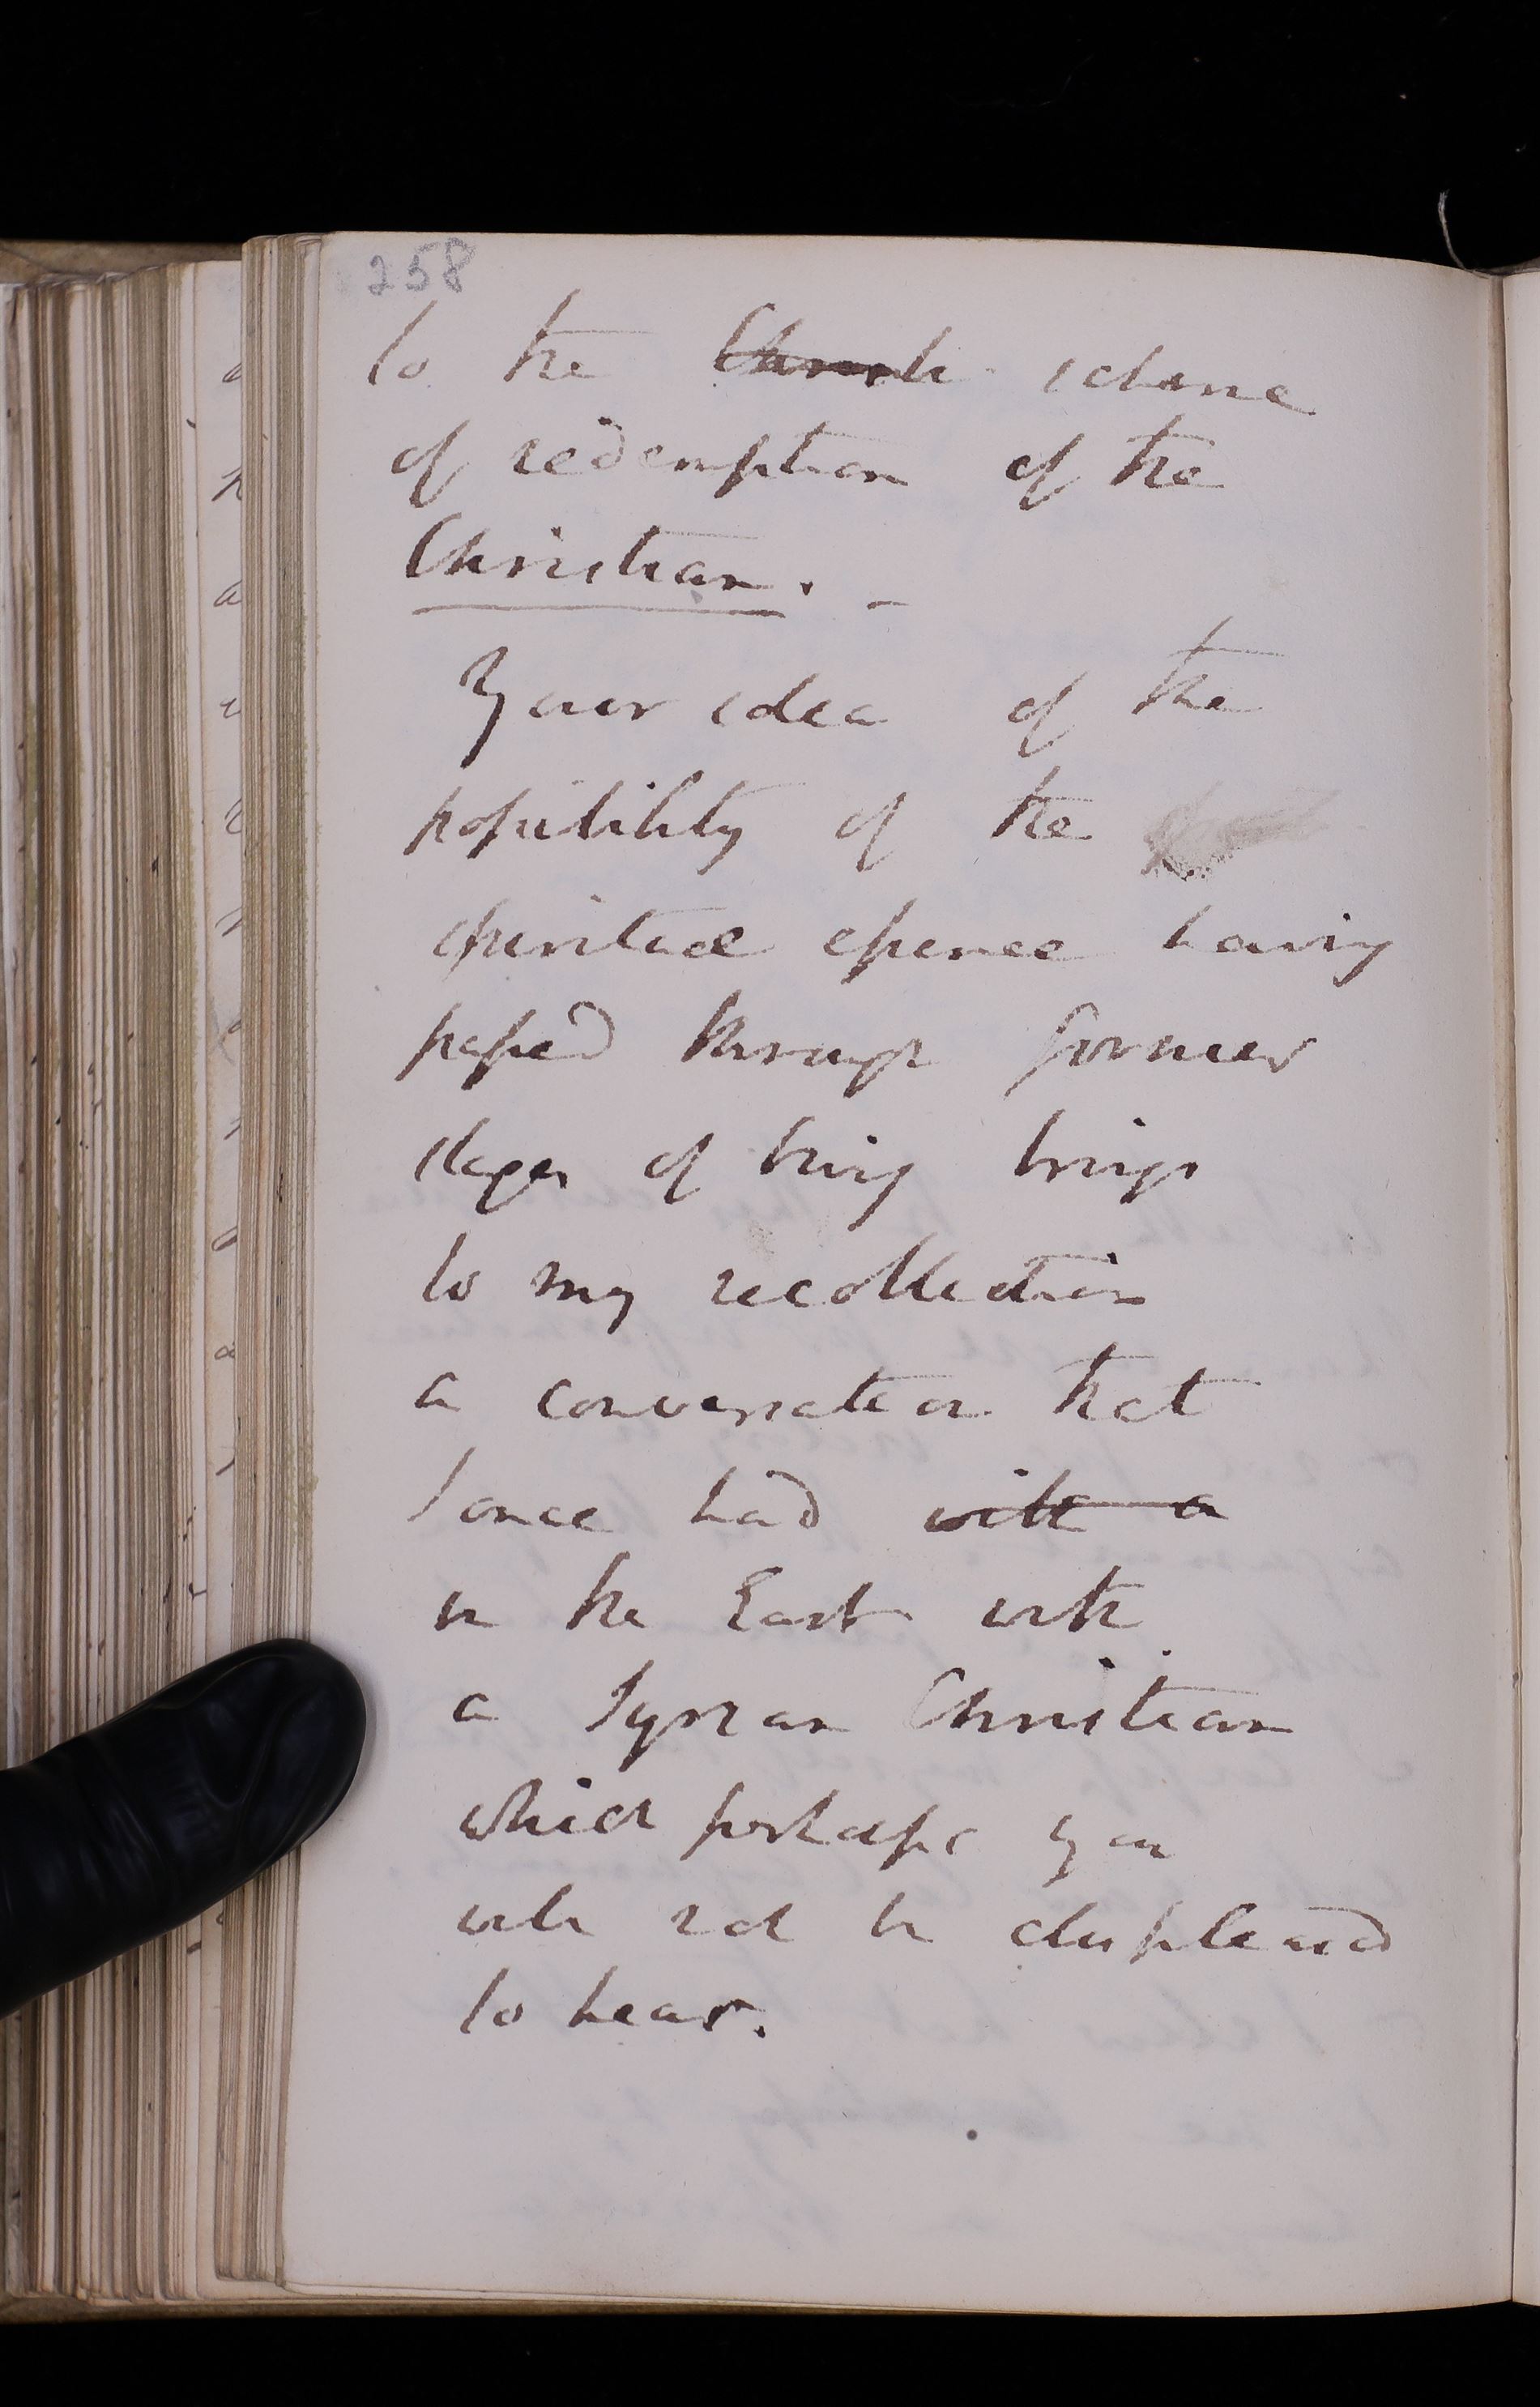 258
to the Church scheme
of redemption of the
Christian. -
Your idea of the
possibility of the
spiritual essence having
passed through former
stages of being brings
to my recollection
a conversation that
I once had with a
in the East with
a Syrian Christian
which perhaps you
will not be displeased
to hear.